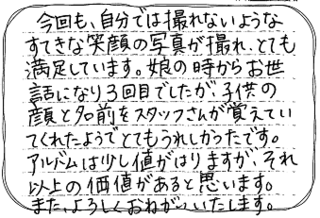 今回も、自分では撮れないような
すてきな笑顔の写真が撮れ、とても
満足しています。娘の時からお世
話になり3回目でしたが、子供の
顔と名前をスタッフさんが覚えてい
てくれたようでとてもうれしかったです。
アルバムは少し値がはりますが、それ
以上の価値があると思います。
また、よろしくおねがいいたします。